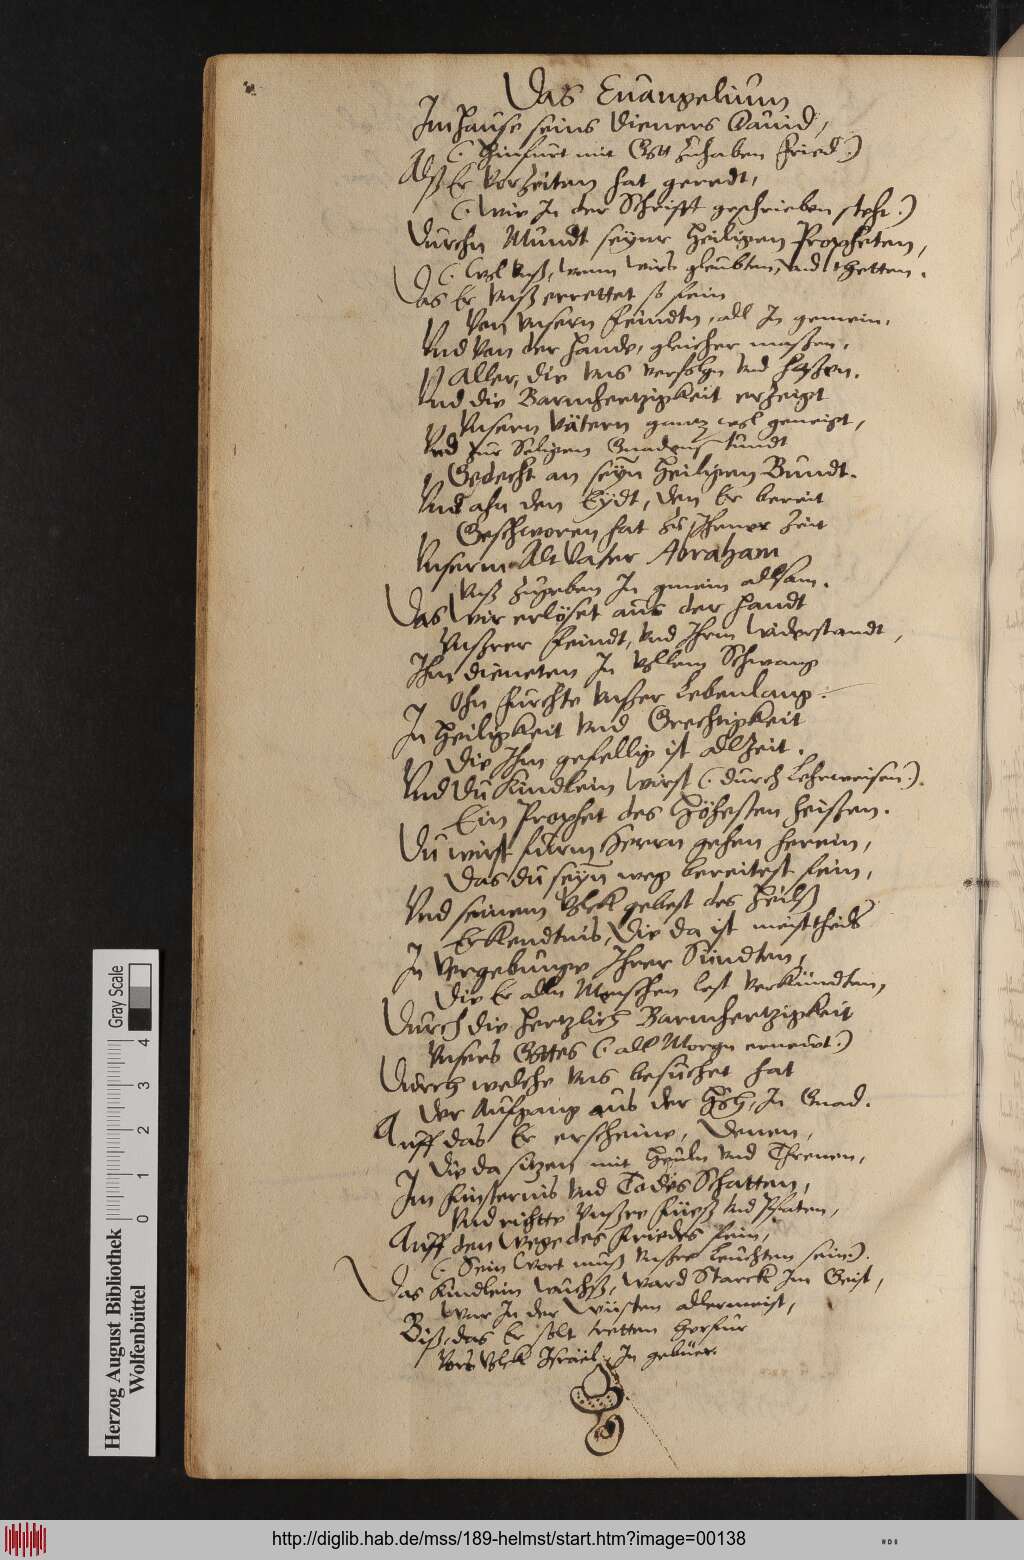 Das Euangelium
Im hause seins dieners Dauid,
(. Hinfurt mit Gott zuhaben fried .)
Alß Er Vorzeiten hat geredt,
(. Wie In der Schrifft geschrieben steht .)
Durchn Mundt seyner Heiligen Propheten,
(. Wol Vnß, wenn wirs gleubten, vnd thetten.
Das Er Vnß errettet so fein
Von Vnsern feindtn, all In gemein,
Vnd Von der hande, gleicher maßen,
Aller, die Vns verfolgn Vnd haßen.
Vnd die Barmhertzigkeit erzeigt
Vnsern Vätern gantz wol geneigt,
Vnd zur Seligen Gnaden stundt
Gedecht an seyn Heiligen Bundt.
Vnd ahn den Eydt, den Er bereit
Geschworen hat zu Jhener Zeit
Vnserm Alt Vater Abraham
Vnß zugeben In gmein allsam.
Das Wir erlöset aus der handt
Vnßrer feindt, Vnd Ihrm Widerstandt,
Ihm dieneten In Vollem Schwang
Ohn furchte Vnßer Lebenlang.
In Heiligkeit Vnd Grechtigkeit
Die Ihm gefellig ist allzeit.
Vnd Du Kindlein Wirst (. durch Lehrweisen .).
Ein Prophet des Höhesten heißen.
Du wirst fürm Herrn gehen herein,
Das du seyn weg bereitest fein,
Vnd seinem Volck gebest des Heilß
Erkendtnis, Die da ist meisttheils
In Vergebunge Ihrer Sündten,
Die Er alln Menschen lest Verkündten,
Durch die hertzlich Barmhertzigkeit
Vnsers Gottes (. all Morgn erneurt .)
Durch welche Vns besuchet hat
Der Aufgang aus der Höh, In Gnad.
Auff das Er erscheine, Denen,
Die da sitzen mit Heuln Vnd Threnen,
Im finsternis Vnd Todes Schatten,
Vnd richtte Vnßre füeß Vnd Pfaten,
Auff den Wege des friedes fein,
(. Sein Wort muß Vnßre Leuchten sein .).
Das Kindlein Wuchß, Ward Starck Im Geist,
War In der Wüsten allermeist,
Biß, das Er solt tretten herfür
Vors Volck Israel, In gebüer.
Gray Scale
4
3
2
1
0
Herzog August Bibliothek
Wolfenbüttel
http://diglib.hab.de/mss/189-helmst/start.htm?image=00138